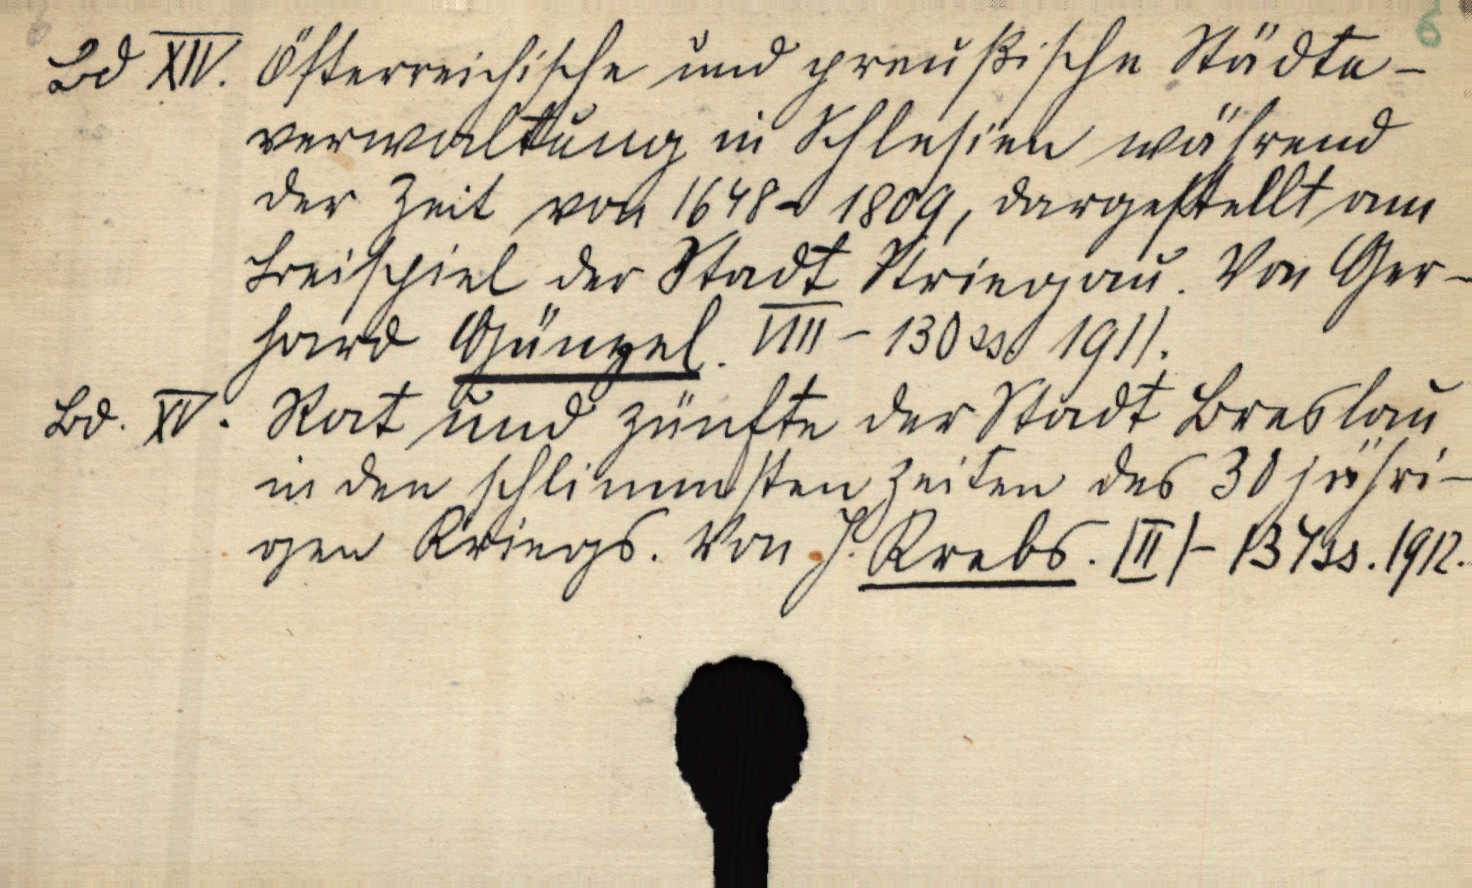 6
Bd XIV. Österreichische und preußische Städte-
verwaltung in Schlesien während
der Zeit von 1648-1809, dargestellt am
Beispiel der Stadt Striegau. Von Ger-
hard Günzel. VIII - 130 ss 1911.
Bd. XV. Rat und Zünfte der Stadt Breslau
in den schlimmsten Zeiten des 30 jähri-
gen Kriegs. Von J. Krebs. |III| - 137 ss. 1912.